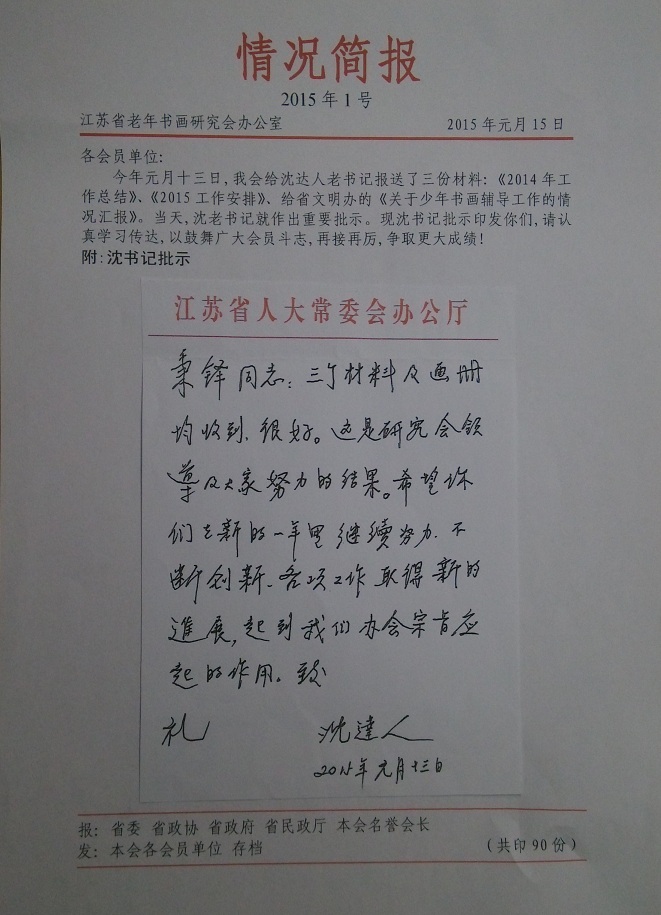 情况简报
2015年1号
江苏省老年书画研究会办公室 2015年元月15日
各会员单位:
今年元月十三日,我会给沈达人老书记报送了三份材料:《2014年工
作总结》、《2015工作安排》、给省文明办的《关于少年书画辅导工作的情
况汇报》。当天,沈老书记就作出重要批示。现沈书记批示印发你们,请认
真学习传达,以鼓舞广大会员斗志,再接再厉,争取更大成绩!
附:沈书记批示
江苏省人大常委会办公厅
秉铎同志:三个材料及画册
均收到、很好。这是研究会领
导及大家努力的结果。希望你
们在新的一年里继续努力、不
断创新、各项工作取得新的
進展,起到我们办会宗旨应
起的作用。致
礼 沈達人
2015年元月十三日
报:省委 省政协 省政府 省民政厅 本会名誉会长
发:本会各会员单位 存档 (共印90份)